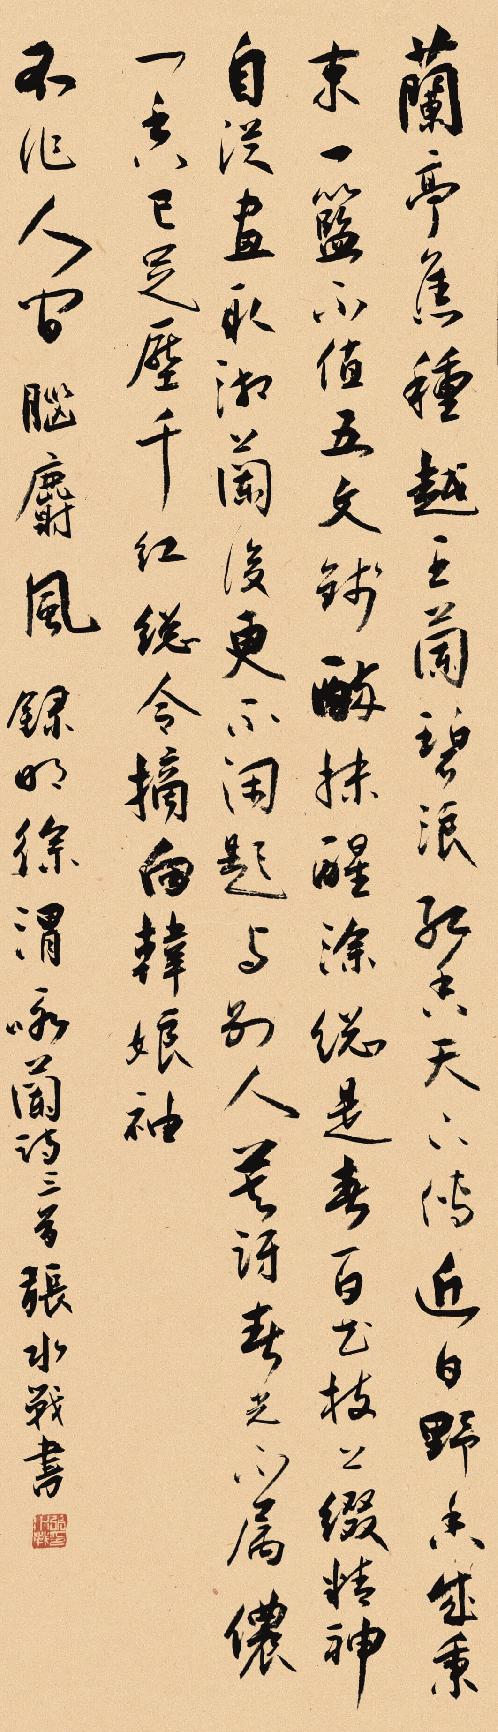 蘭亭舊種越王蘭碧浪紅香天下傳近日野香成秉
束一籃不值五文錢醉抹醒涂總是春百花枝上綴精神
自從畫取湘蘭後更不閑題與別人莫訝春光不屬儂
一香已足壓千紅總令摘向韓娘袖
不作人間腦麝風 録明徐渭咏蘭詩三首張水戰書